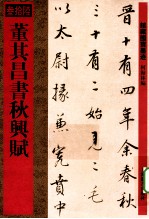 董其昌書秋興賦
晉十有四年余春秋
三十有二始見二毛
以太尉掾兼虎賁中